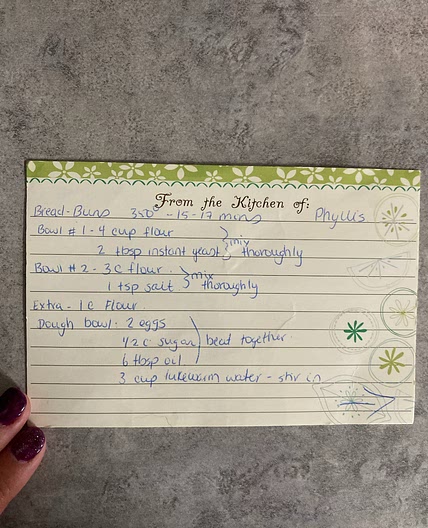 From the Kitchen of:
Bread-Buns 350° - 15-17 mins Phyllis
Bowl #1 - 4 cup flour
2 tbsp instant yeast } mix thoroughly
Bowl #2 - 3c flour
1 tsp salt } mix thoroughly
Extra - 1c Flour
Dough bowl: 2 eggs
1/2 c sugar } beat together
6 tbsp oil
3 cup lukewarm water - stir in